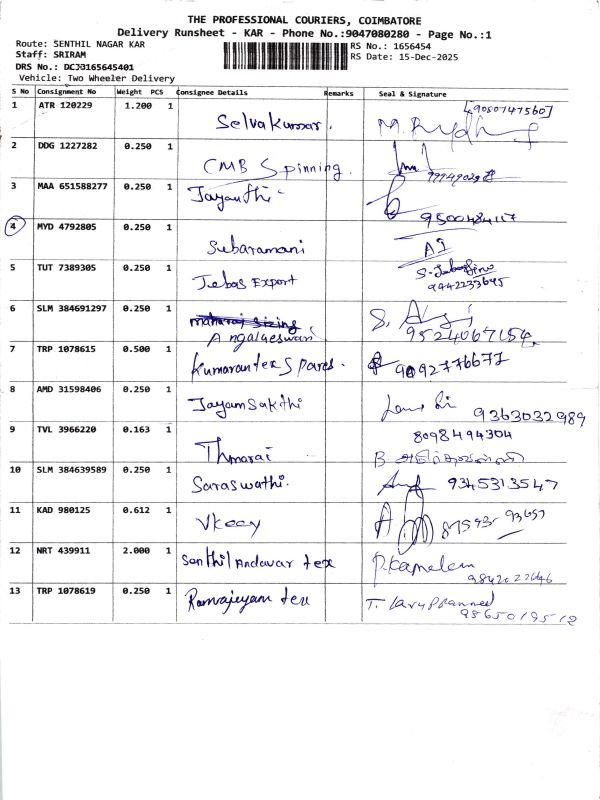 THE PROFESSIONAL COURIERS, COIMBATORE
Delivery Runsheet - KAR - Phone No.:9047080280 - Page No.:1
Route: SENTHIL NAGAR KAR
Staff: SRIRAM
DRS No.: DCJJ165645401
Vehicle: Two Wheeler Delivery
RS No.: 1656454
RS Date: 15-Dec-2025
S No Consignment No Weight PCS Consignee Details Remarks Seal & Signature
1 ATR 120229 1.200 1 Selvakumar. [9050747560]
2 DDG 1227282 0.250 1 CMB Spinning.
3 MAA 651588277 0.250 1 Jayanthi 9500484117
4 MYD 4792805 0.250 1 Subaramani
5 TUT 7389305 0.250 1 Jebas Export 9442233645
6 SLM 384691297 0.250 1 Angalaeswari 9524067154
7 TRP 1078615 0.500 1 Kumaran tex Spares. 9092776677
8 AMD 31598406 0.250 1 Jayam Sakthi 9363032989
9 TVL 3966220 0.163 1 Thmarai 8098494304
10 SLM 384639589 0.250 1 Saraswathi. 9345313547
11 KAD 980125 0.612 1 Vkeey
12 NRT 439911 2.000 1 Senthil Andavar tex P. Kamalam
13 TRP 1078619 0.250 1 Ramajeyam tex